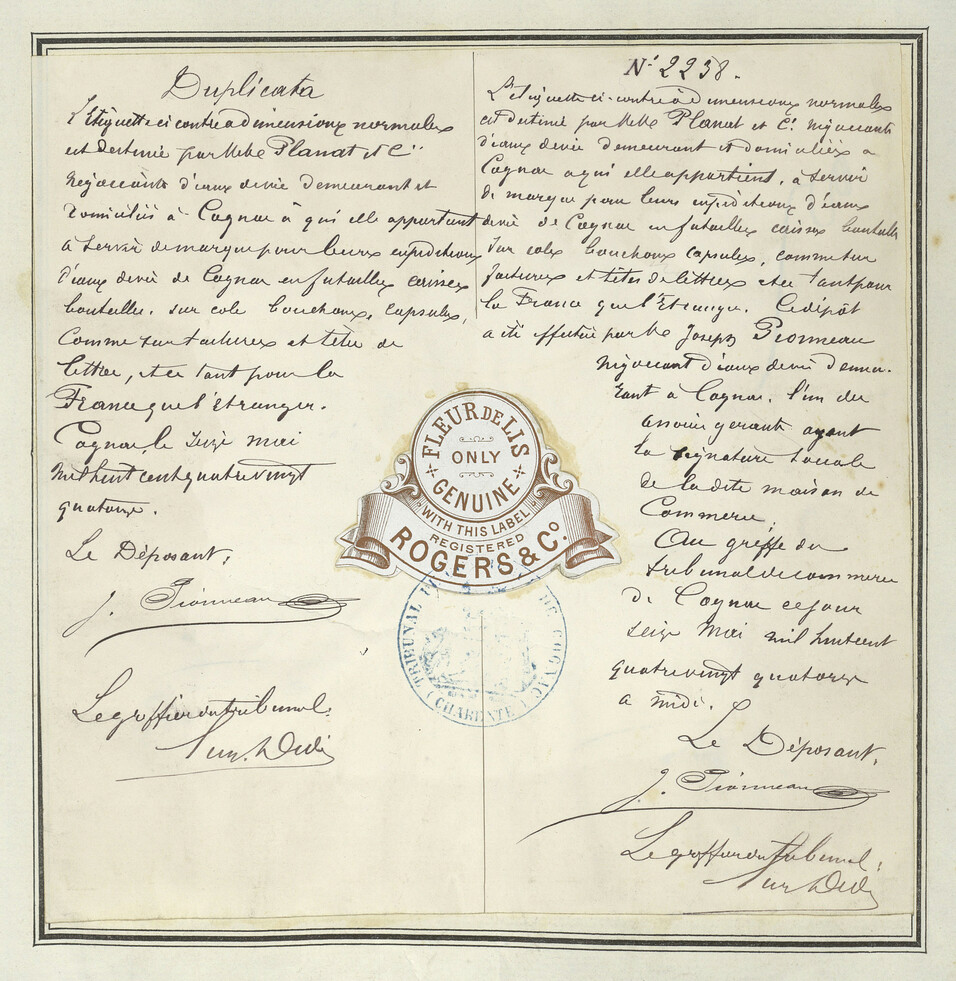 Duplicata
L'Etiquette ci contre a dimensions normales
est destinée par M.M. Planat et Cie
Négociants d'eaux devie demeurant et
domiciliés à Cognac à qui elle appartient
à servir de marque pour leurs expéditions
d'eaux devie de Cognac en futailles caisses
bouteilles, sur cols bouchons, capsules,
comme sur factures et têtes de
lettres, etc tant pour la
France que l'étranger.
Cognac, le seize mai
mil huit cent quatre vingt
quatorze.
Le Déposant,
J. Pionneau
Le greffier du tribunal.
FLEUR DE LIS
ONLY
GENUINE
WITH THIS LABEL
REGISTERED
ROGERS & Co.
TRIBUNAL DE COGNAC
(CHARENTE)
No 2238.
L'etiquette ci-contre à dimensions normales
est destinée par M.M. Planat et Cie Négociants
d'eaux devie demeurant et domiciliés a
Cognac a qui elle appartient, a servir
de marque pour leurs expéditions d'eaux
devie de Cognac en futailles caisses bouteilles
sur cols bouchons capsules, comme sur
factures et têtes de lettres etc tant pour
la France que l'Etranger. Le dépôt
a été effectué par M. Joseph Pionneau
négociant d'eaux devie demeu-
rant à Cognac, l'un des
associés gerants ayant
la signature sociale
de la dite maison de
Commerce
Au greffe du
tribunal de commerce
de Cognac ce jour
seize Mai mil huit cent
quatre vingt quatorze
a midi.
Le Déposant,
J. Pionneau
Le greffier du tribunal.